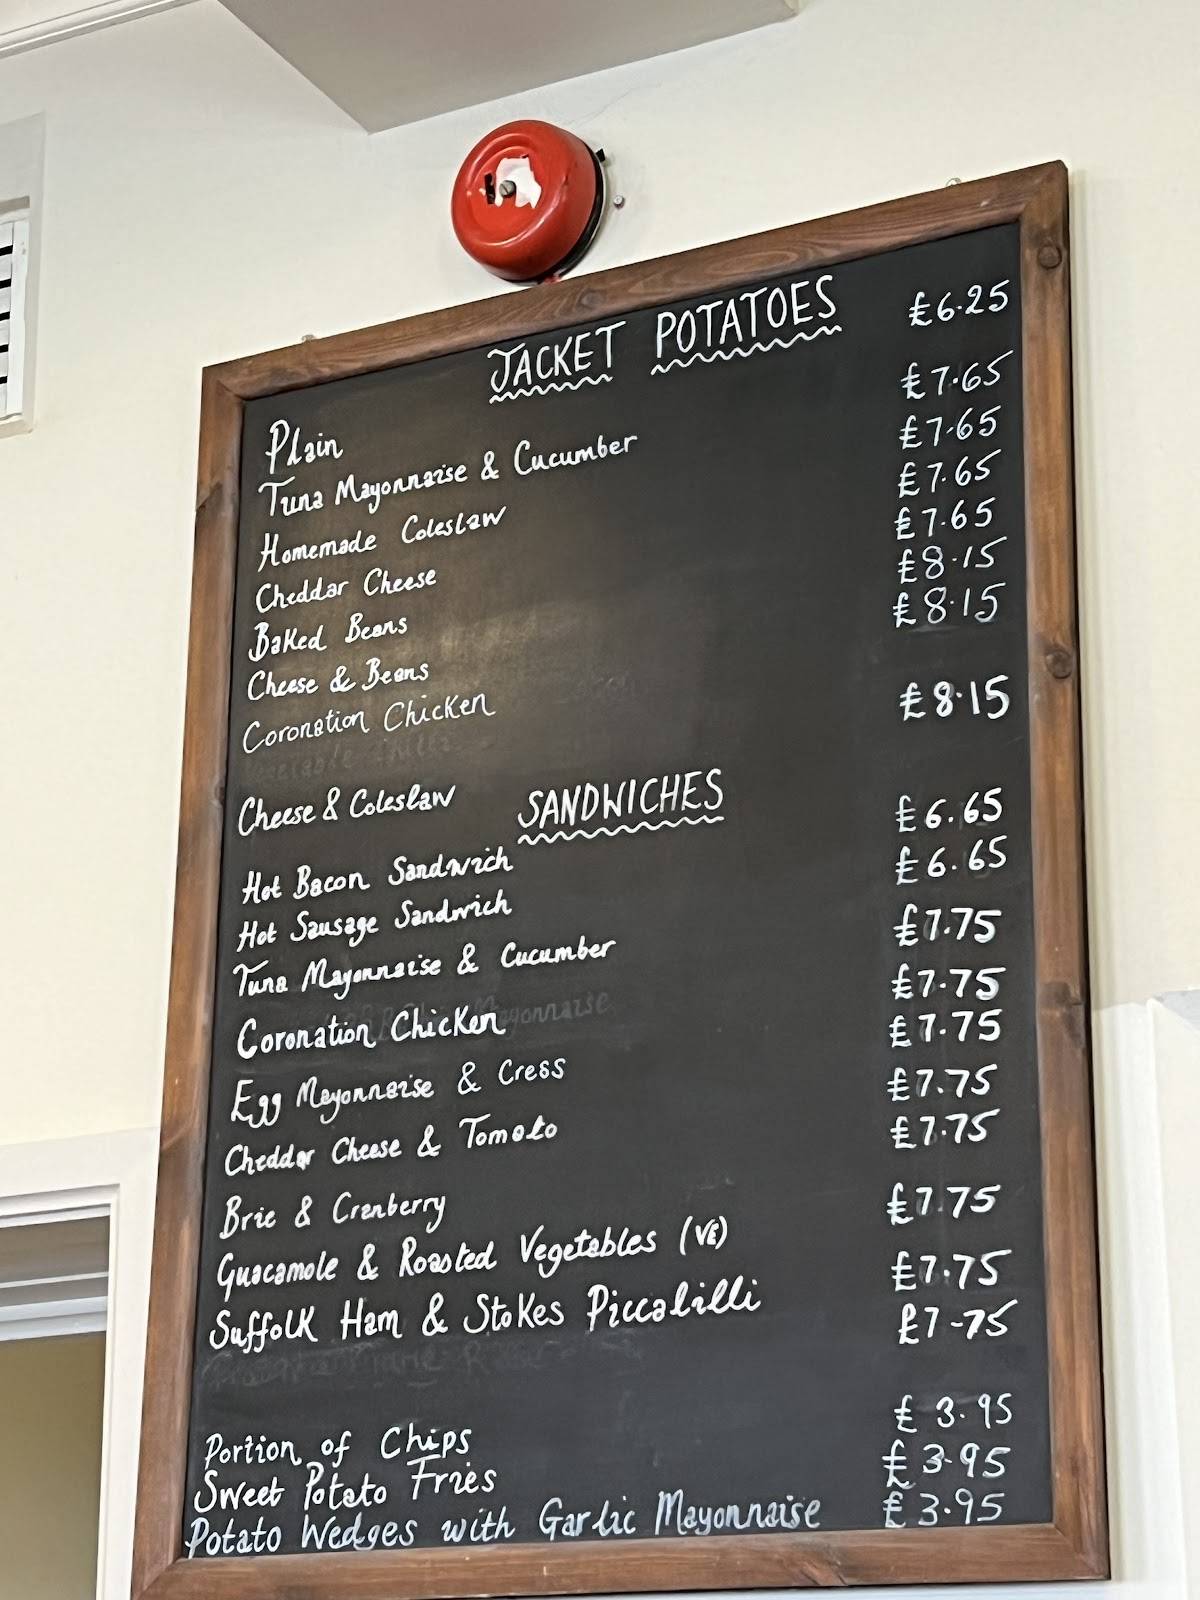 JACKET POTATOES
Plain £6.25
Tuna Mayonnaise & Cucumber £7.65
Homemade Coleslaw £7.65
Cheddar Cheese £7.65
Baked Beans £7.65
Cheese & Beans £8.15
Coronation Chicken £8.15
Cheese & Coleslaw £8.15
SANDWICHES
Hot Bacon Sandwich £6.65
Hot Sausage Sandwich £6.65
Tuna Mayonnaise & Cucumber £7.75
Coronation Chicken £7.75
Egg Mayonnaise & Cress £7.75
Cheddar Cheese & Tomato £7.75
Brie & Cranberry £7.75
Guacamole & Roasted Vegetables (VE) £7.75
Suffolk Ham & Stokes Piccalilli £7.75
£7-75
Portion of Chips £3.95
Sweet Potato Fries £3.95
Potato Wedges with Garlic Mayonnaise £3.95